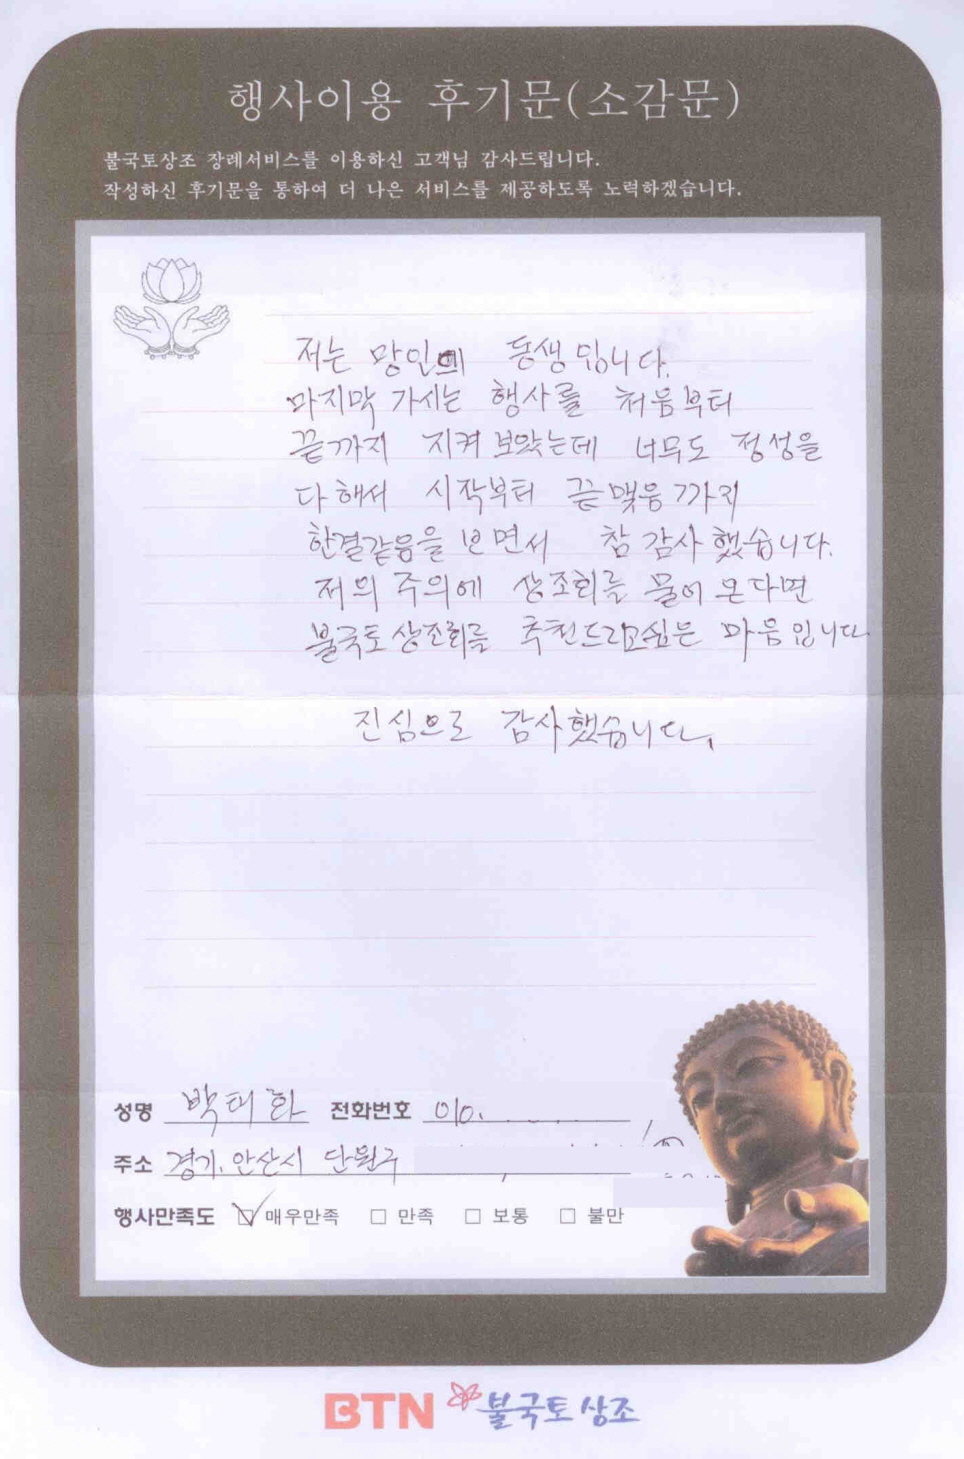 행사이용 후기문(소감문)
불국토상조 장례서비스를 이용하신 고객님 감사드립니다.
작성하신 후기문을 통하여 더 나은 서비스를 제공하도록 노력하겠습니다.
저는 망인의 동생입니다.
마지막 가시는 행사를 처음부터
끝까지 지켜 보았는데 너무도 정성을
다해서 시작부터 끝맺음까지
한결같음을 보면서 참 감사했습니다.
저의 주의에 상조회를 물어 온다면
불국토상조회를 추천드리고싶은 마음입니다
진심으로 감사했습니다.
성명 박태화 전화번호 010.
주소 경기. 안산시 단원구
행사만족도 ☑ 매우만족 □ 만족 □ 보통 □ 불만
BTN 불국토상조